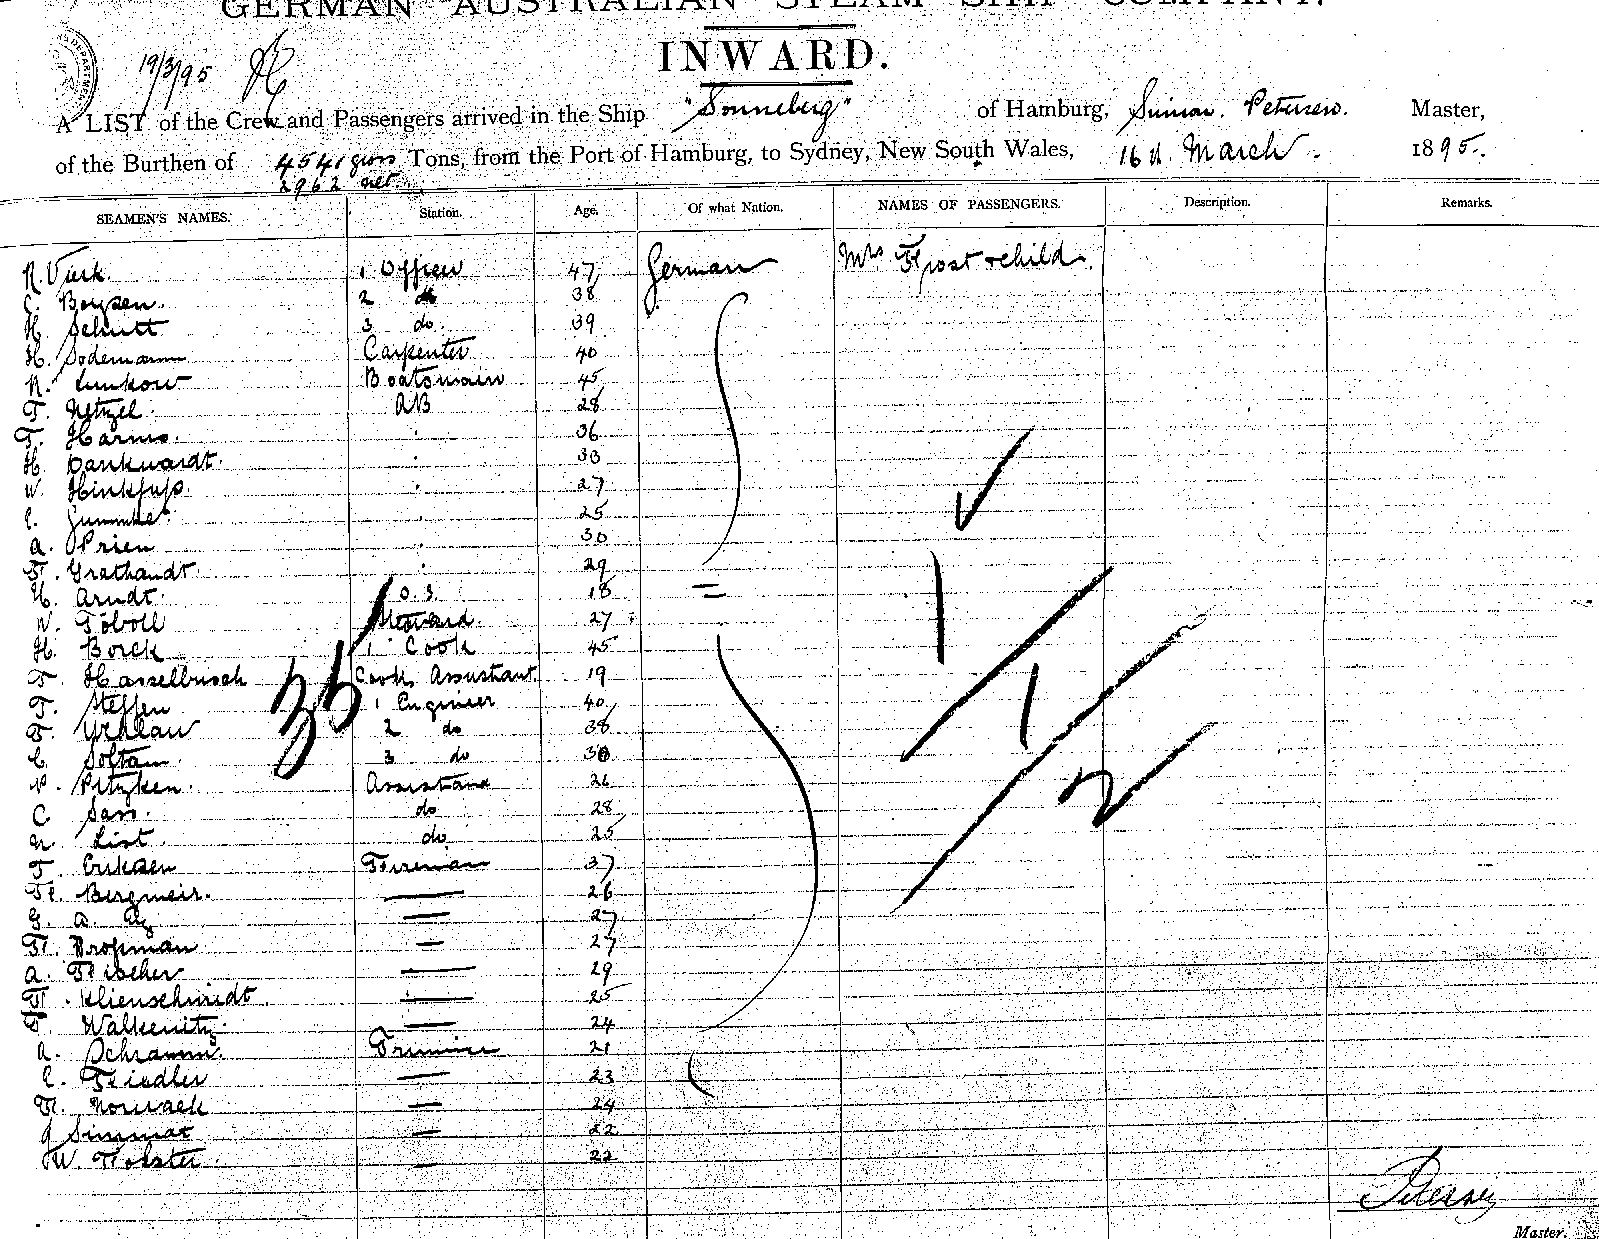 GERMAN AUSTRALIAN STEAM SHIP COMPANY.
INWARD.
19/3/95
A LIST of the Crew and Passengers arrived in the Ship "Sonneberg" of Hamburg, Simon. Petersen. Master,
of the Burthen of 4541 gross Tons, from the Port of Hamburg, to Sydney, New South Wales, 16th March. 1895.
2962 net
SEAMEN'S NAMES. Station. Age. Of what Nation. NAMES OF PASSENGERS. Description. Remarks.
1 Officer 47 German Mrs Frost & child.
C. Boysen. 2 do 38
H Schutt 3 do. 39
H. Sodemann Carpenter 40
Boatswain 45
T. Netzel. AB 28
T. Harms. 36
H. Dankwardt.
W. Hinkfuss. 27
25
A. Prien 30
29
H. Arndt. O.S. 18
W. Toboll Steward. 27
H. Borck 1 Cook 45
F. Hasselbusch Cooks Assistant. 19
T. Steffen 1 Engineer 40
2 do 38
C Soltau. 3 do
Assistant
C Sass. do 28
List. do 25
T. Eriksen Fireman 37
Fr. Bergmeir. 26
G. A. 27
Fr. Dropman 27
A. Fischer 29
Fr. Klienschmidt. 25
24
A. Schramm. Trimmer 21
C. Fiedler 23
Fr. Nowack 24
Simmat 22
W. 22
Petersen
Master.